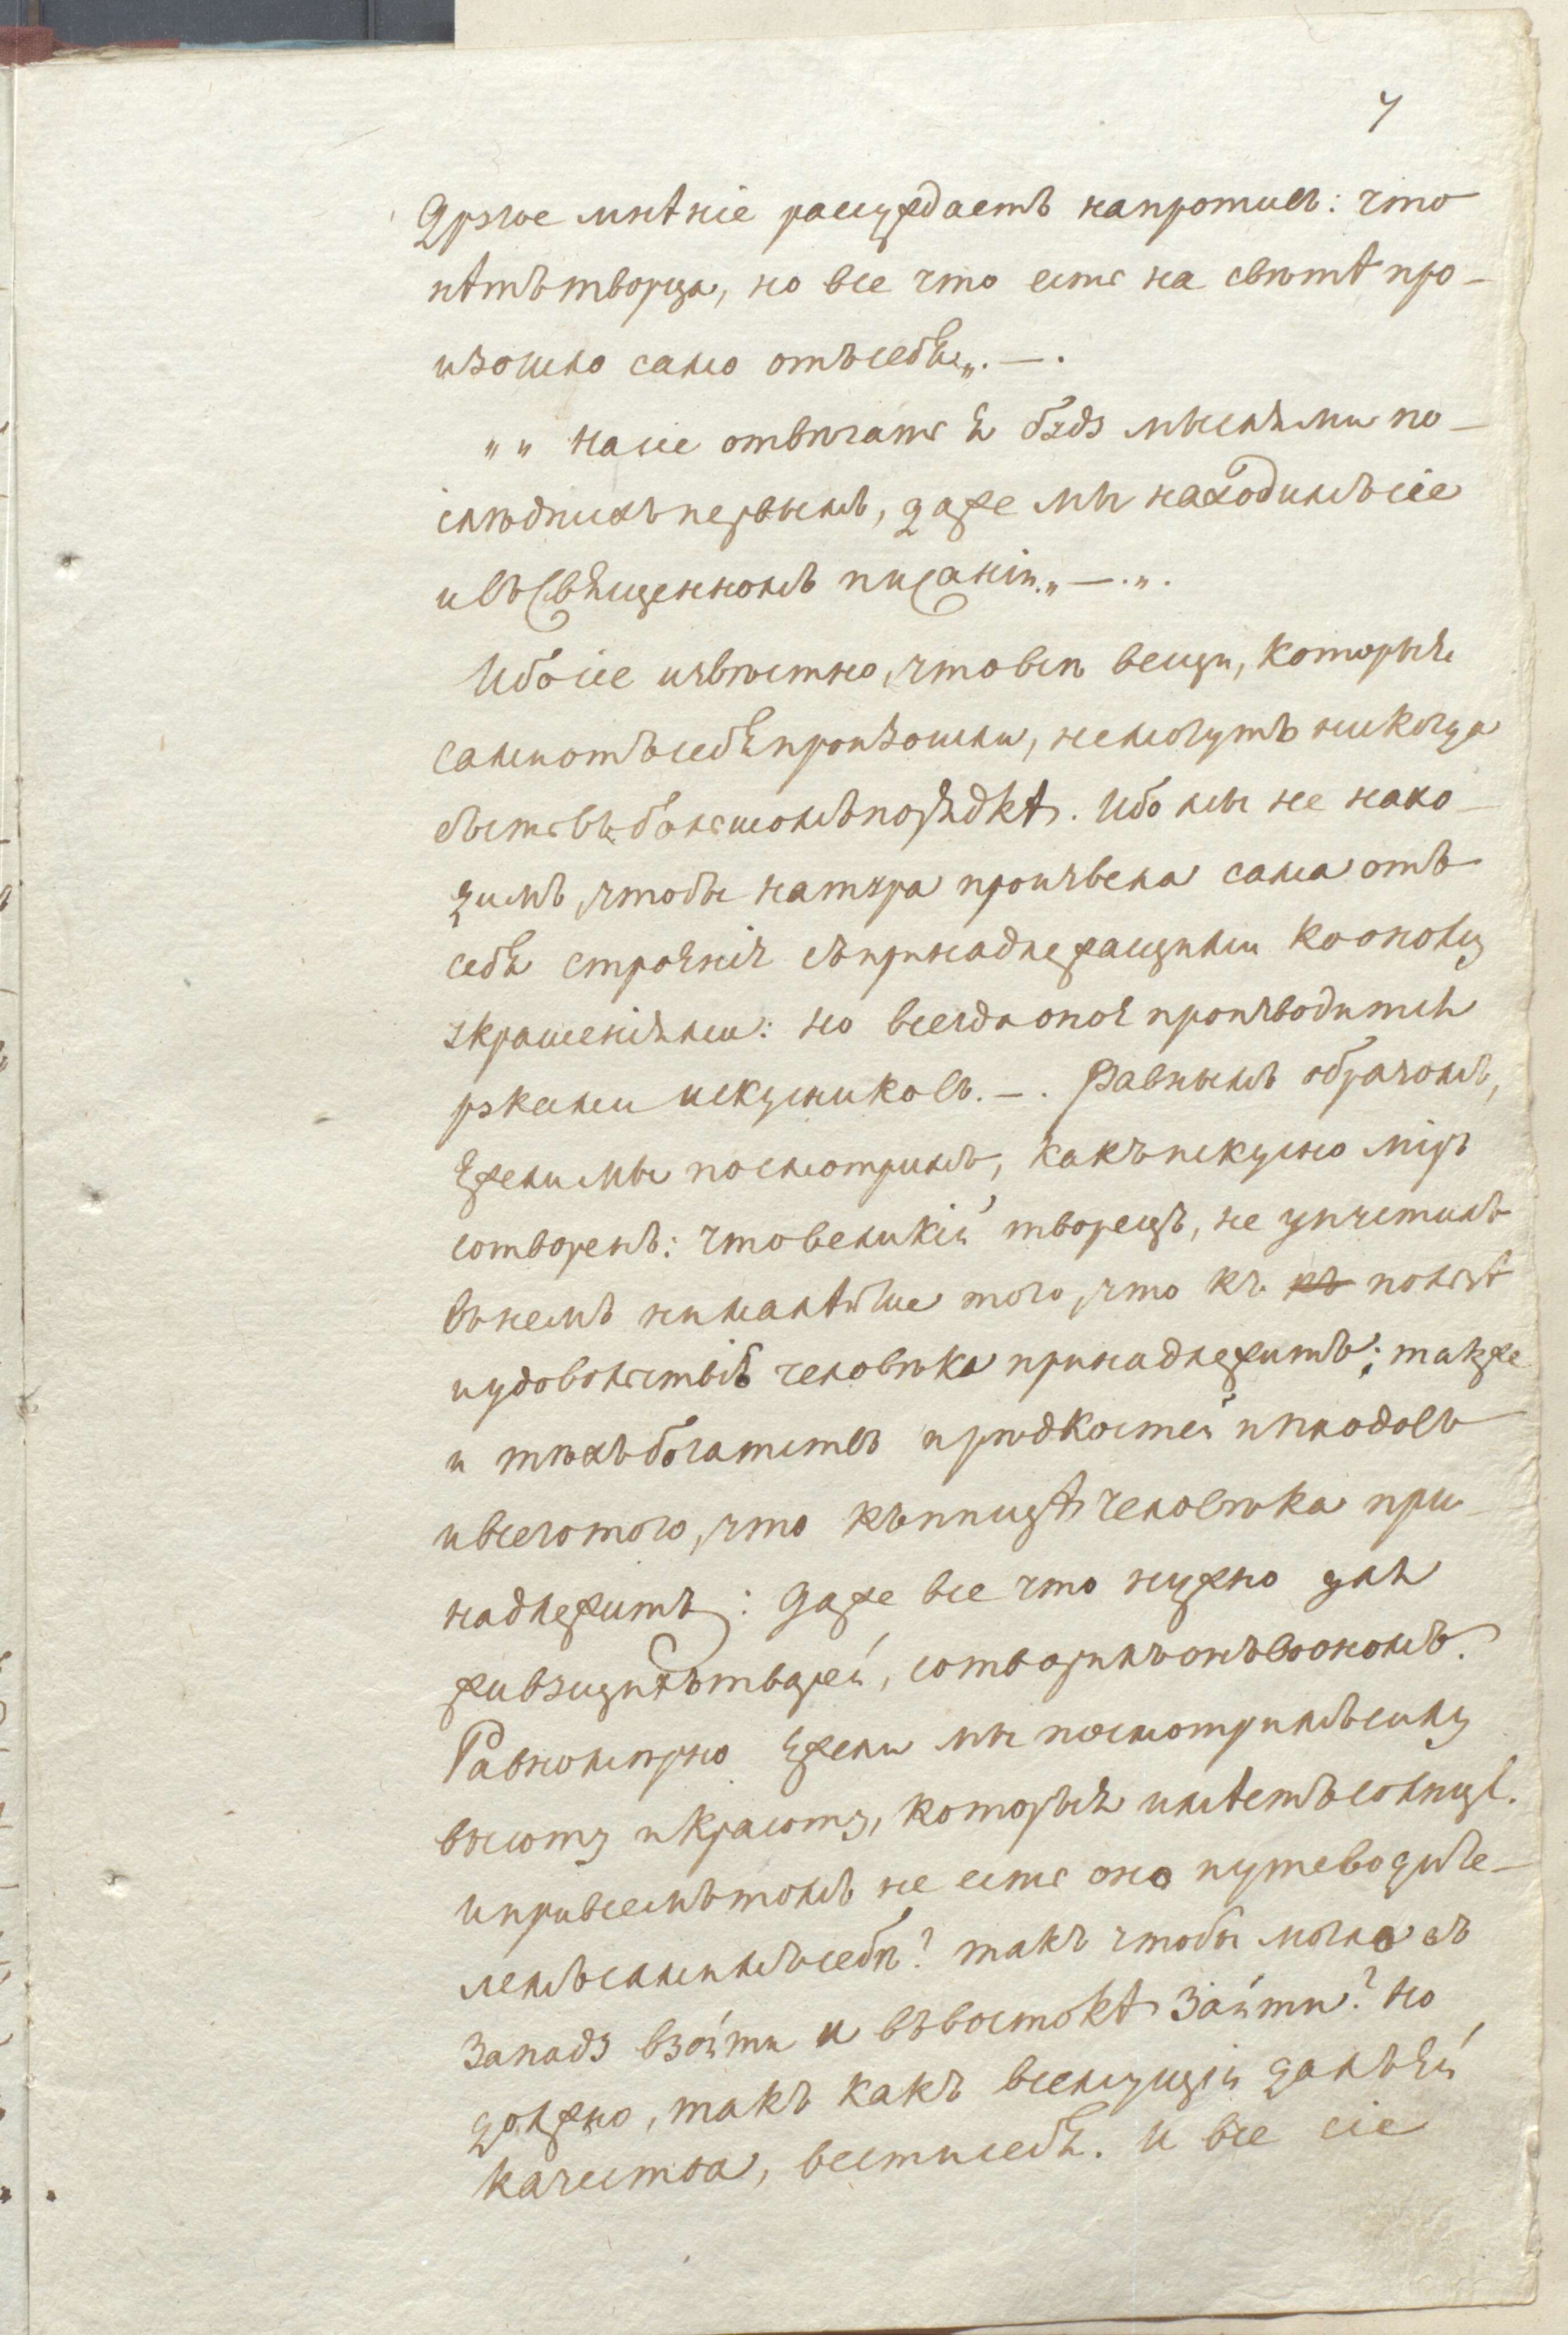 7
Другое мнѣніе расуждаетъ напротивъ: что
нѣтъ творца, но все что есть на свѣтѣ про-
изошло само отъ себя„. — .
„ „ на сіе отвѣчать я буду мысльми по-
слѣднихъ первымъ, даже мы находимъ сіе
и въ Священномъ писаніи.„ — . „ .
Ибо сіе извѣстно, что всѣ вещи, которыя
сами отъ себя произошли, не могутъ никогда
быть въ большомъ порядкѣ. Ибо мы не нахо-
димъ, чтобы натура произвела сама отъ
себя строенія съ принадлежащими ко оному
украшеніями: но всегда оноя производится
руками искусниковъ. — . Равнымъ образомъ,
Ежели мы посмотримъ, какъ искусно міръ
сотворенъ: что великій творецъ, не упустилъ
въ немъ ни малѣйше того, что къ къ ползѣ
и удовольствію человѣка принадлежитъ; также
и тѣхъ богатствъ и рѣдкостей и плодовъ
и всего того, что къ пищѣ человѣка при-
надлежитъ: даже все что нужно для
живущихъ тварей, сотворилъ онъ во ономъ.
Равномѣрно Ежели мы посмотримъ силу
высоту и красоту, которыя имѣетъ солнце.
и при всемъ томъ не есть оно путеводите-
лемъ самимъ себѣ? такъ чтобы могло съ
западу взойти и въ востокѣ зайти? но
должно, такъ какъ всемущій далъ ей
качества, вести себя. И все сіе